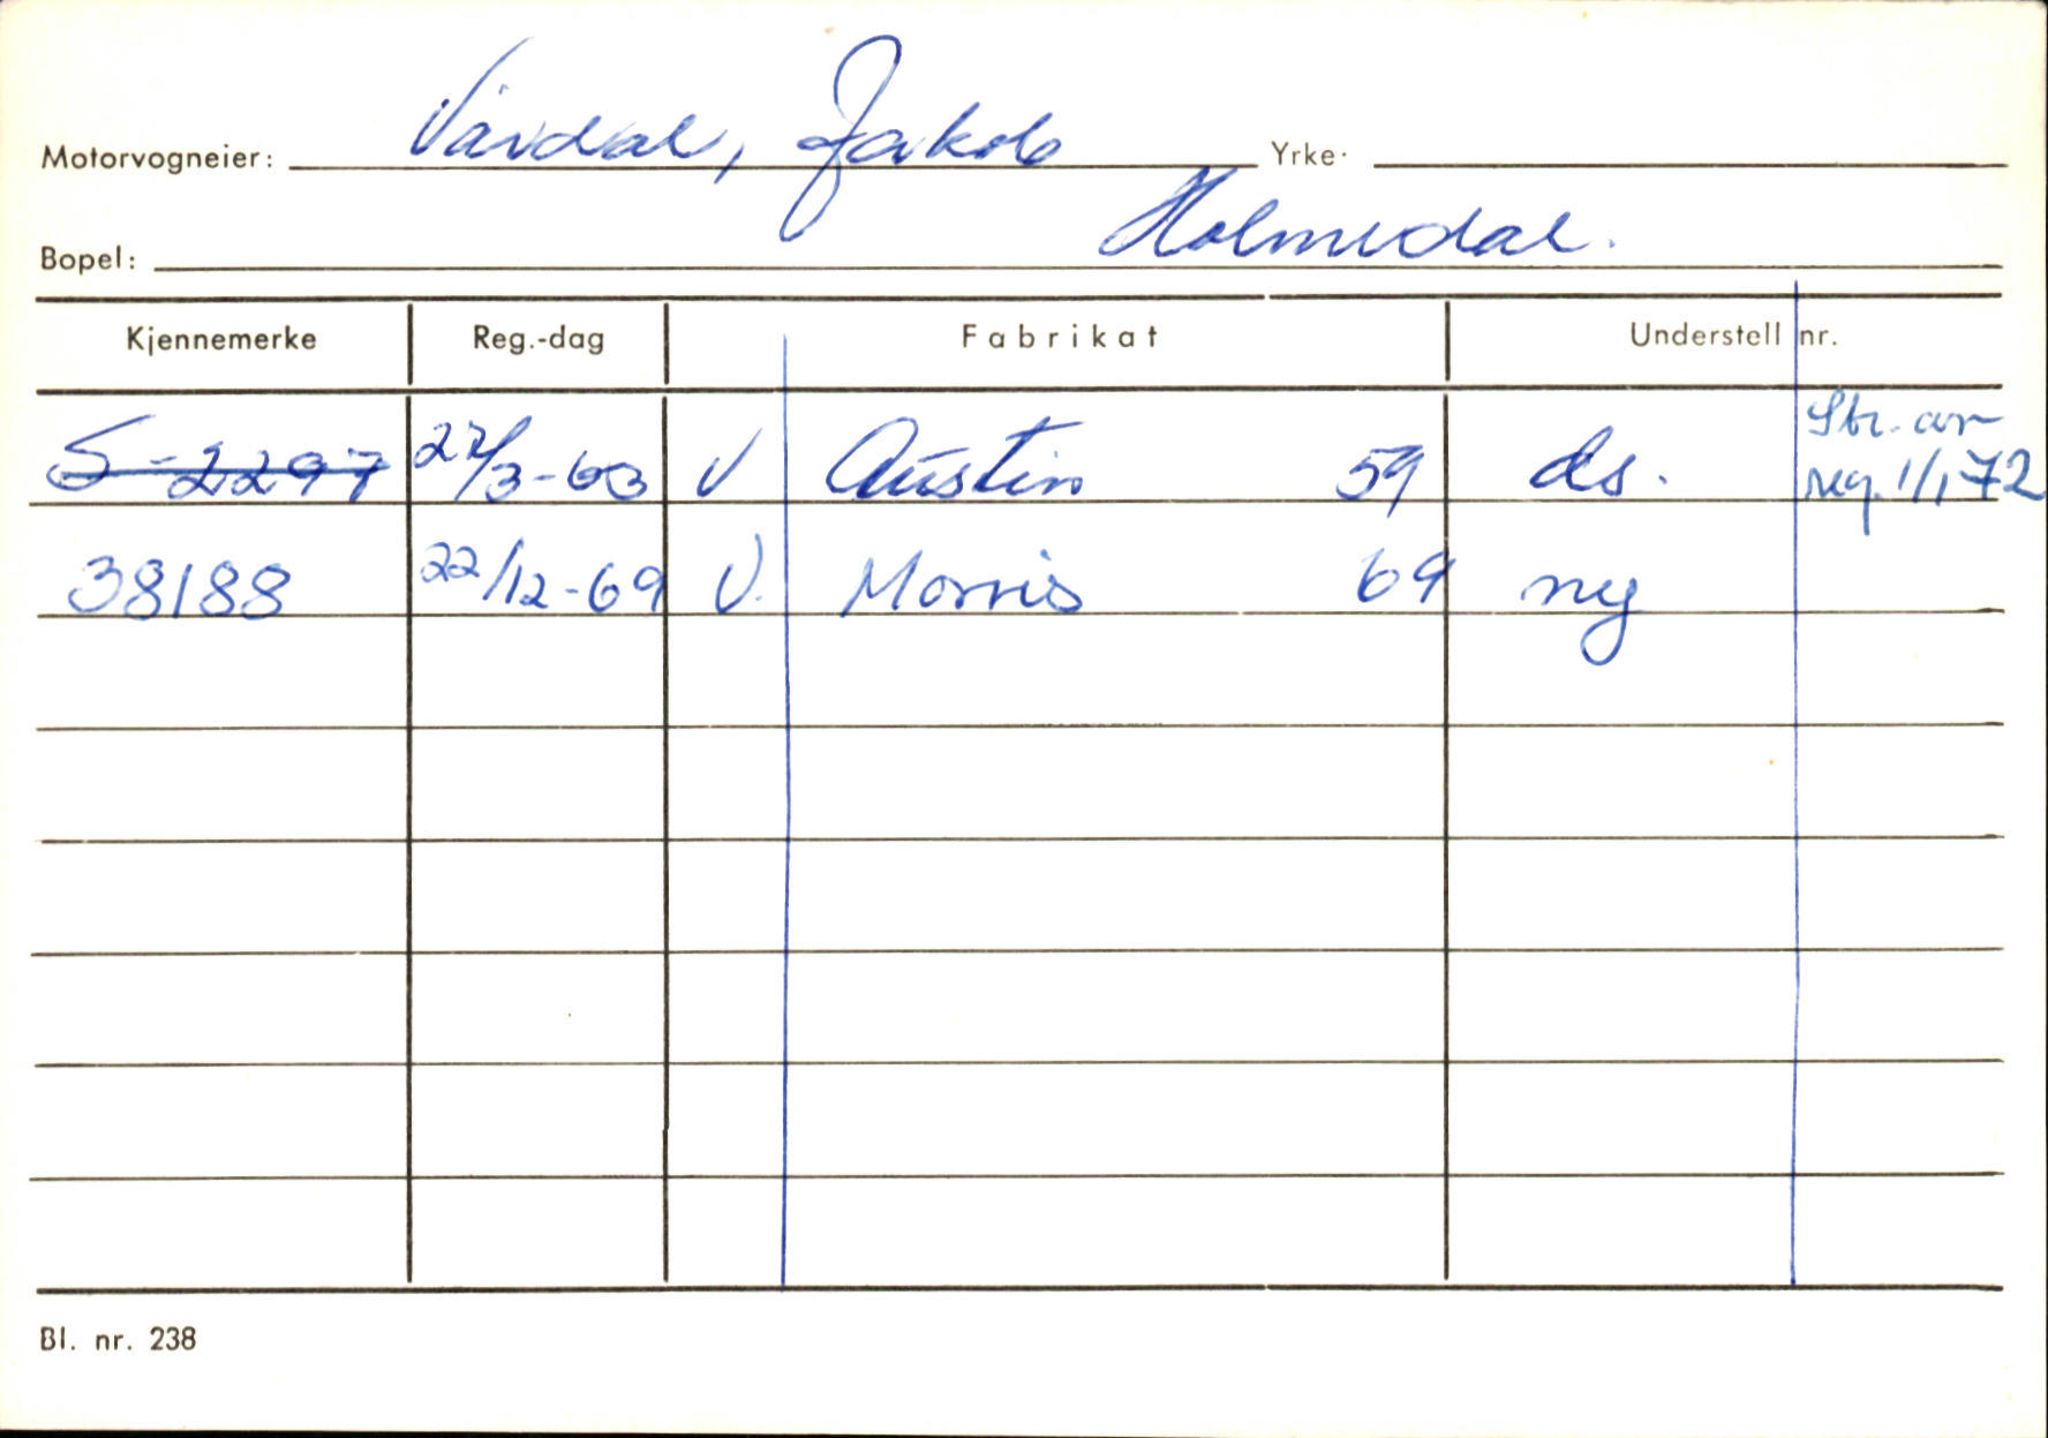 Motorvogneier: Vårdal, Jakob Yrke:
Bopel: Holmedal.
Kjennemerke Reg.-dag Fabrikat Understell nr.
S-2297 22/3-63 V Austin 59 ds. Str. av
reg. 1/1 72
38188 22/12-69 V. Morris 69 ny
Bl. nr. 238